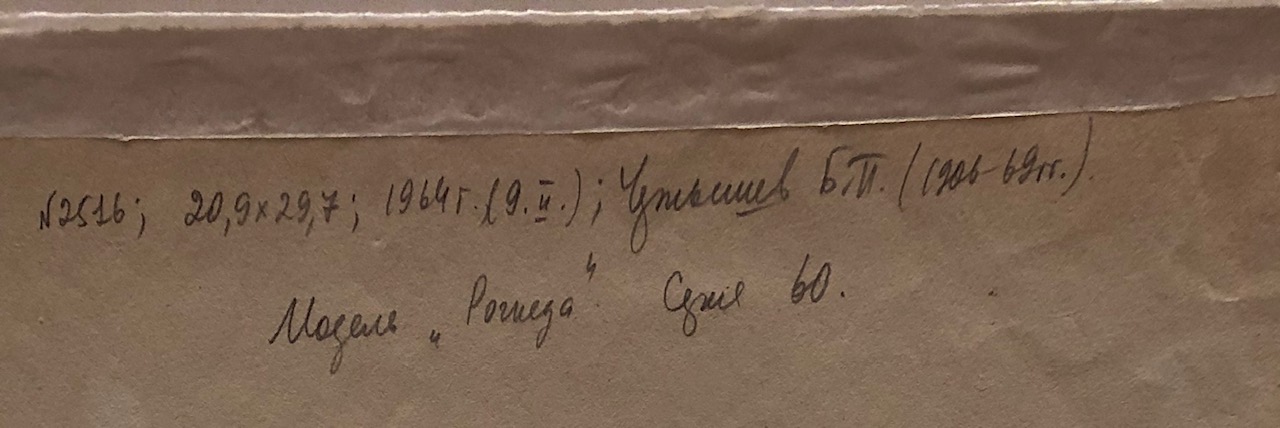 №2516; 20,9×29,7; 1964г. (9.II.); Б.П. (1906-69гг.).
Модель „Рогнеда" 60.